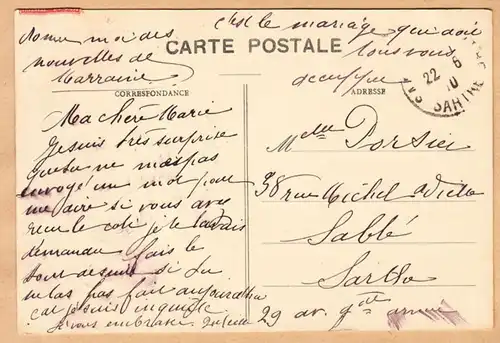 c'est le mariage qui doit
tous vous
occuper
donne moi des
nouvelles de
Marraine
CARTE POSTALE
CORRESPONDANCE
ADRESSE
22 6
10
SARTHE
Ma chère Marie
Je suis très surprise
que tu ne m'ai pas
envoyé un mot pour
me dire si vous avez
reçu le coli je te l'avais
demandé fais le
tout de suite si tu
ne l'as pas fait aujourd'hui
car je suis inquiète
je vous embrasse
Melle Dorsier
38 rue Michel Vielle
Sablé
Sarthe
29 av. gde armée